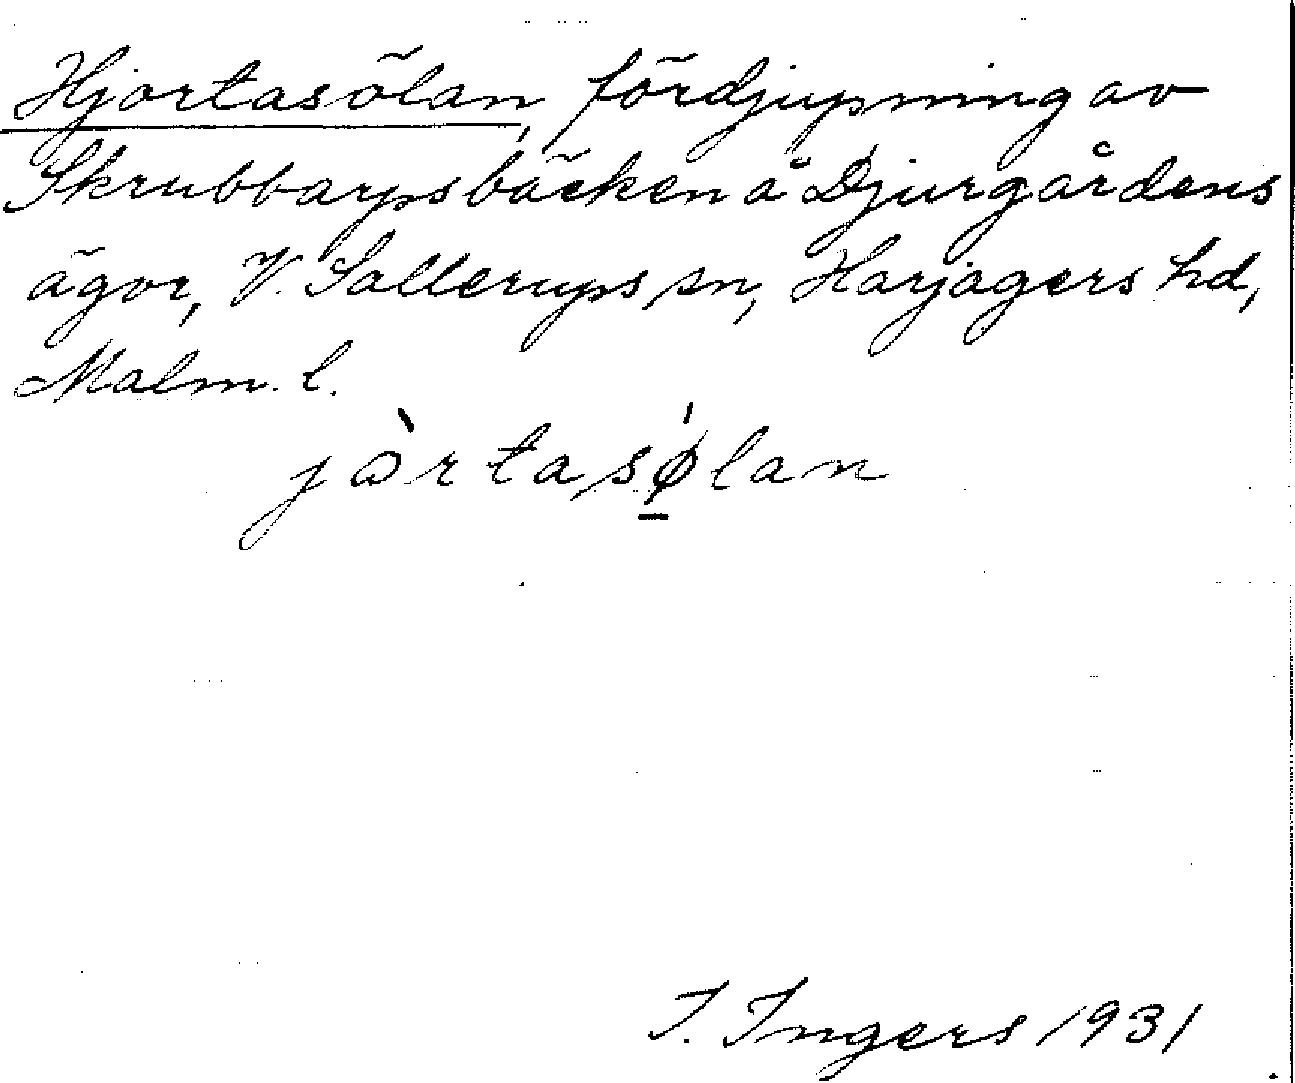 Hjortasölan, fördjupning av
Skrubbarpsbäcken å Djurgårdens
ägor, V. Sallerups sn, Harjagers hd,
Malm. l.
jɔ̀rtasǿ̱lan
I. Ingers 1931